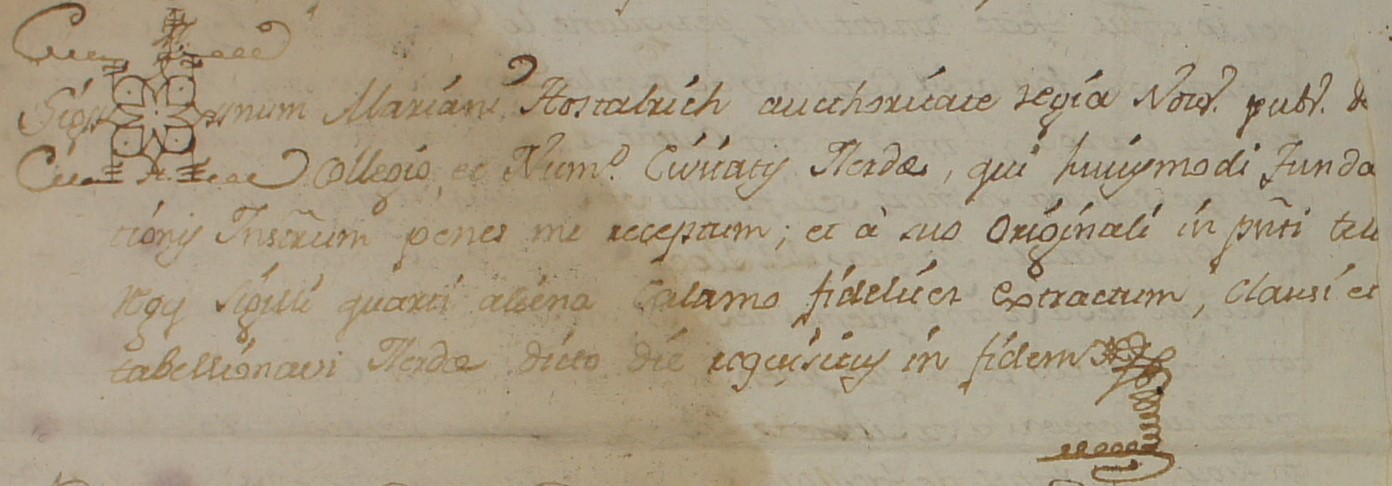 Sig num Mariani Hostalrich aucthoritate regia Notr. pubr. de
Collegio, et Num.º Civitatis Ilerdæ, qui huiusmodi Funda
tionis Instrum penes me receptum; et à suo Originali in pnti
Regii sigilli quarti aliena Calamo fideliter extractum, clausi et
tabellionavi Ilerdæ dicto die requisitus in fidem